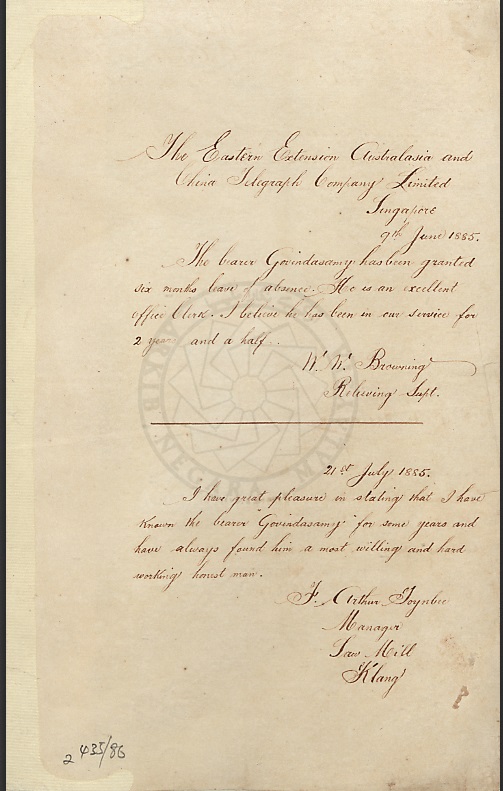 The Eastern Extension Australasia and
China Telegraph Company Limited
Singapore
9th June 1885.
The bearer Govindasamy has been granted
six months leave of absence. He is an excellent
office Clerk. I believe he has been in our service for
2 years and a half.
W. W. Browning
Relieving Supt.
21st July 1885.
I have great pleasure in stating that I have
known the bearer "Govindasamy" for some years and
have always found him a most willing and hard
working honest man.
F. Arthur Toynbee
Manager
Saw Mill
Klang
2 435/86